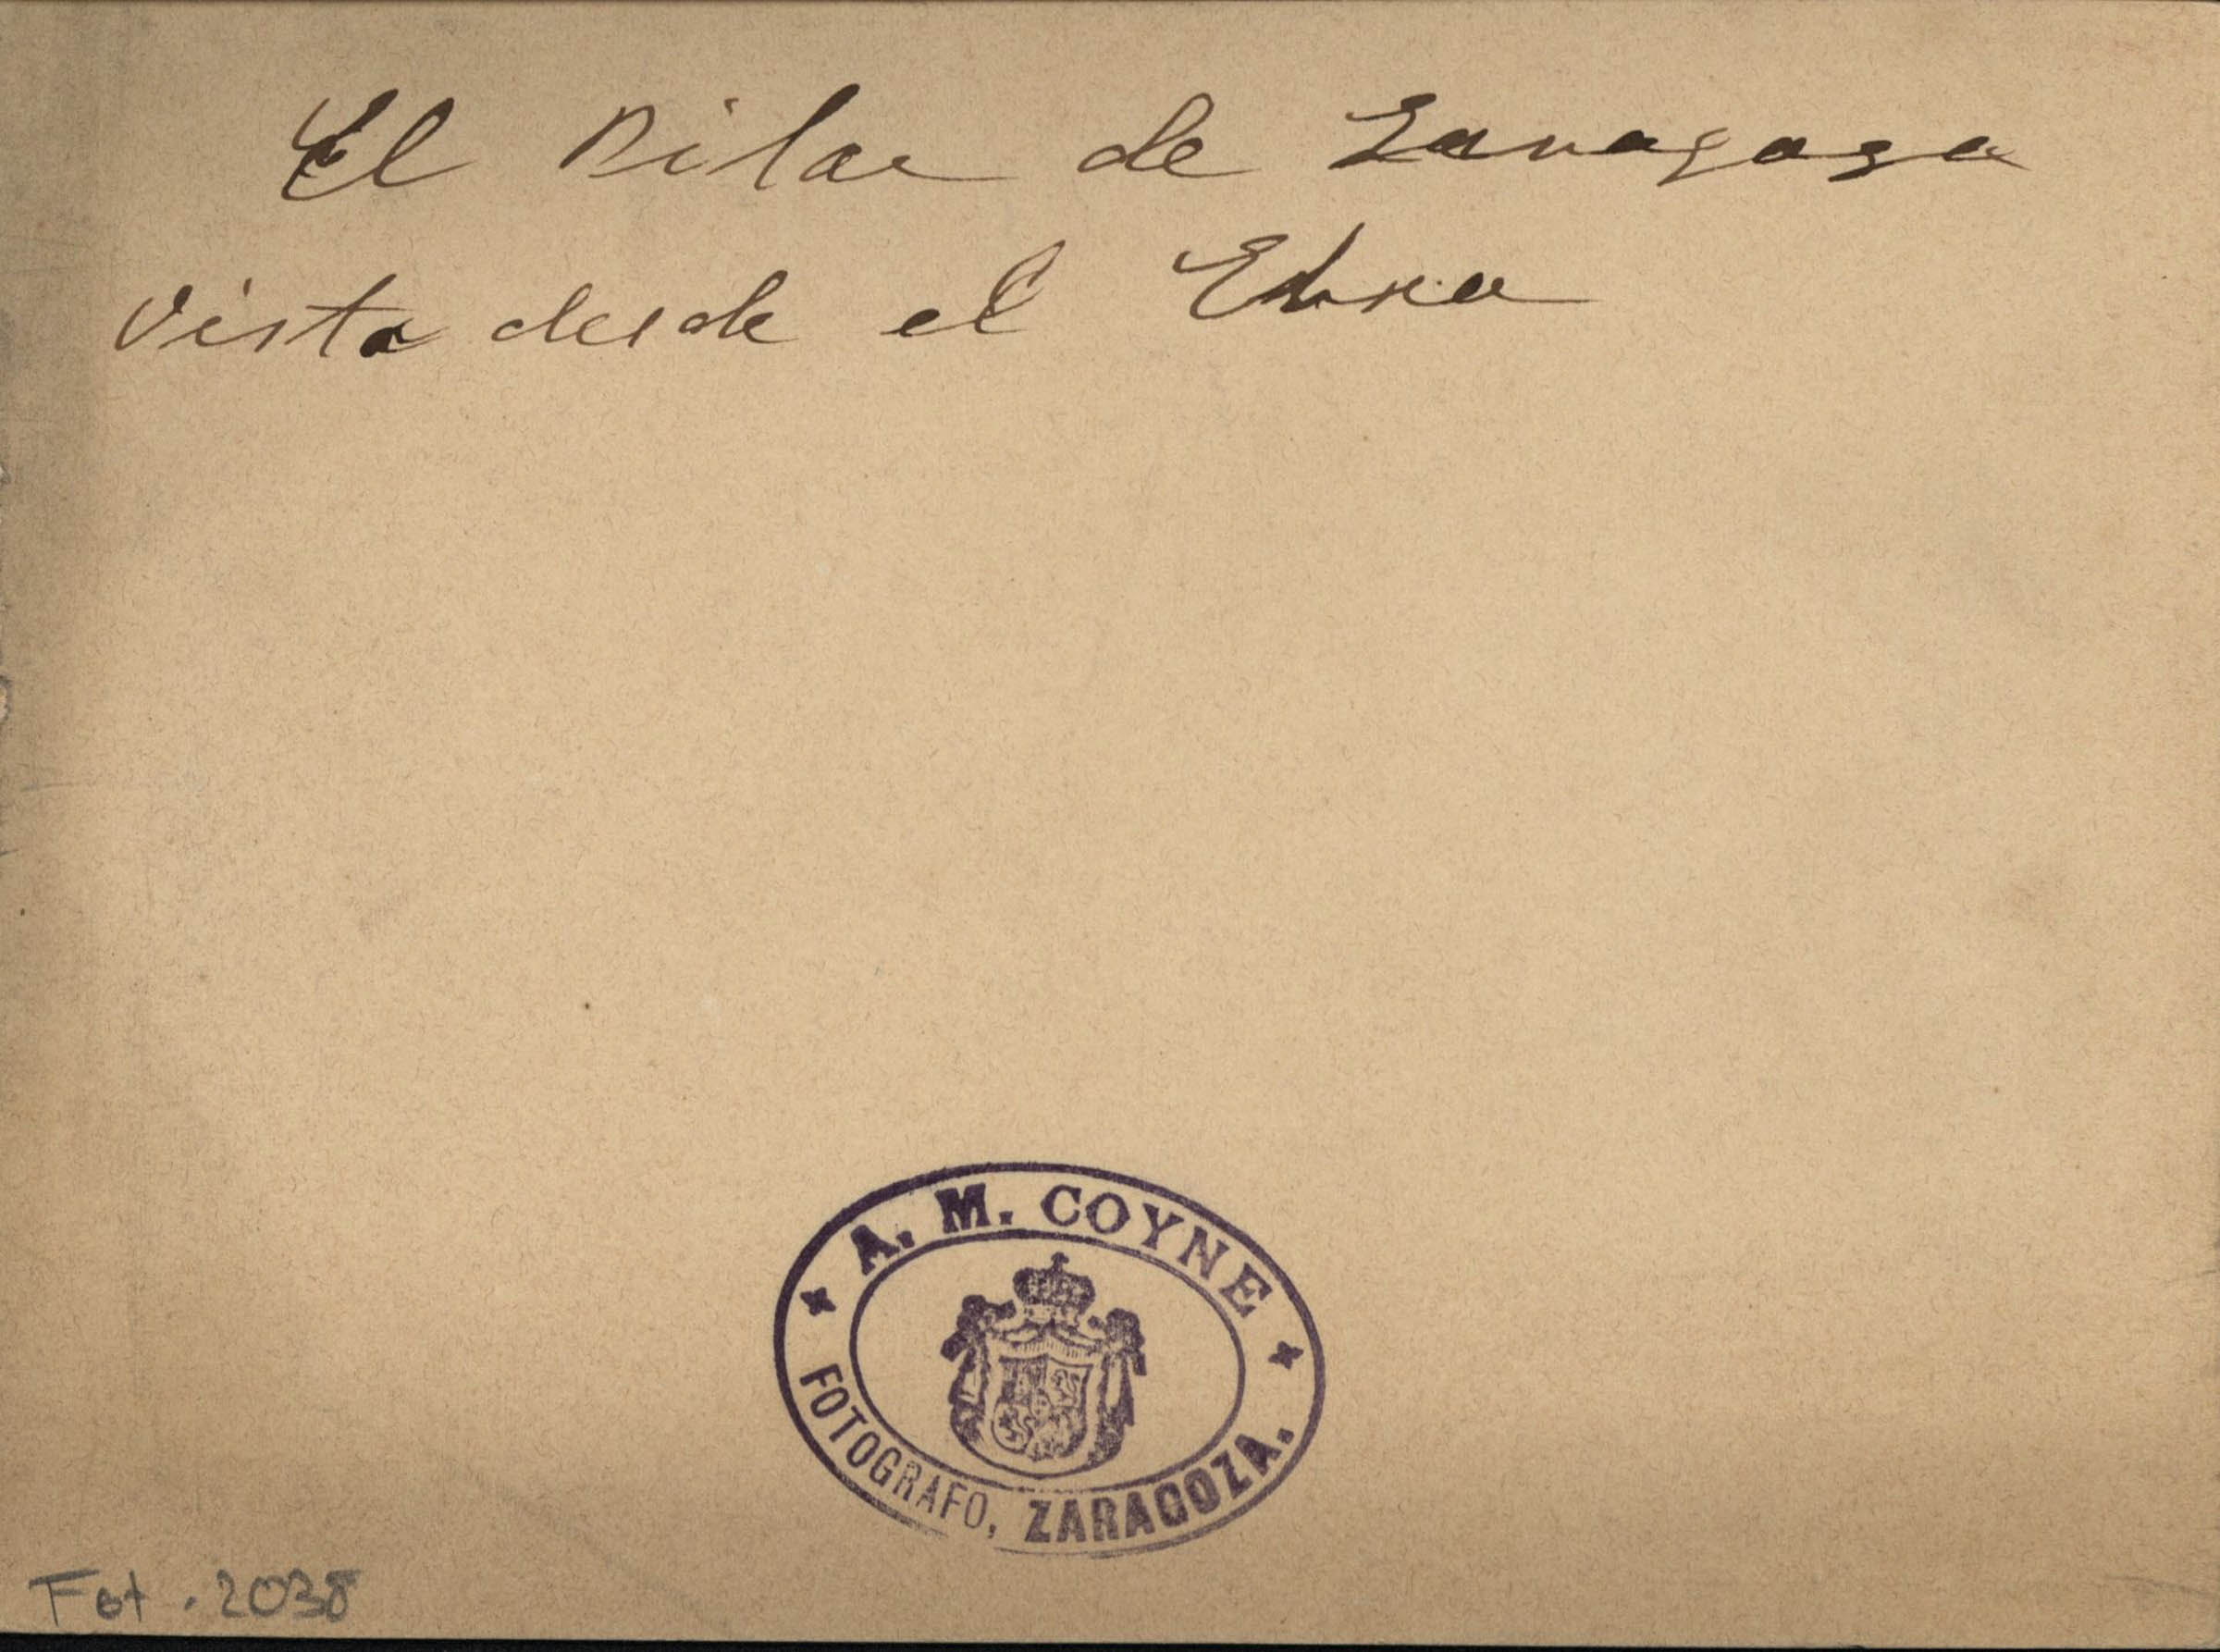 El Pilar de Zaragoza
Vista desde el Ebro
A. M. COYNE
FOTOGRAFO, ZARAGOZA.
Fot. 2038